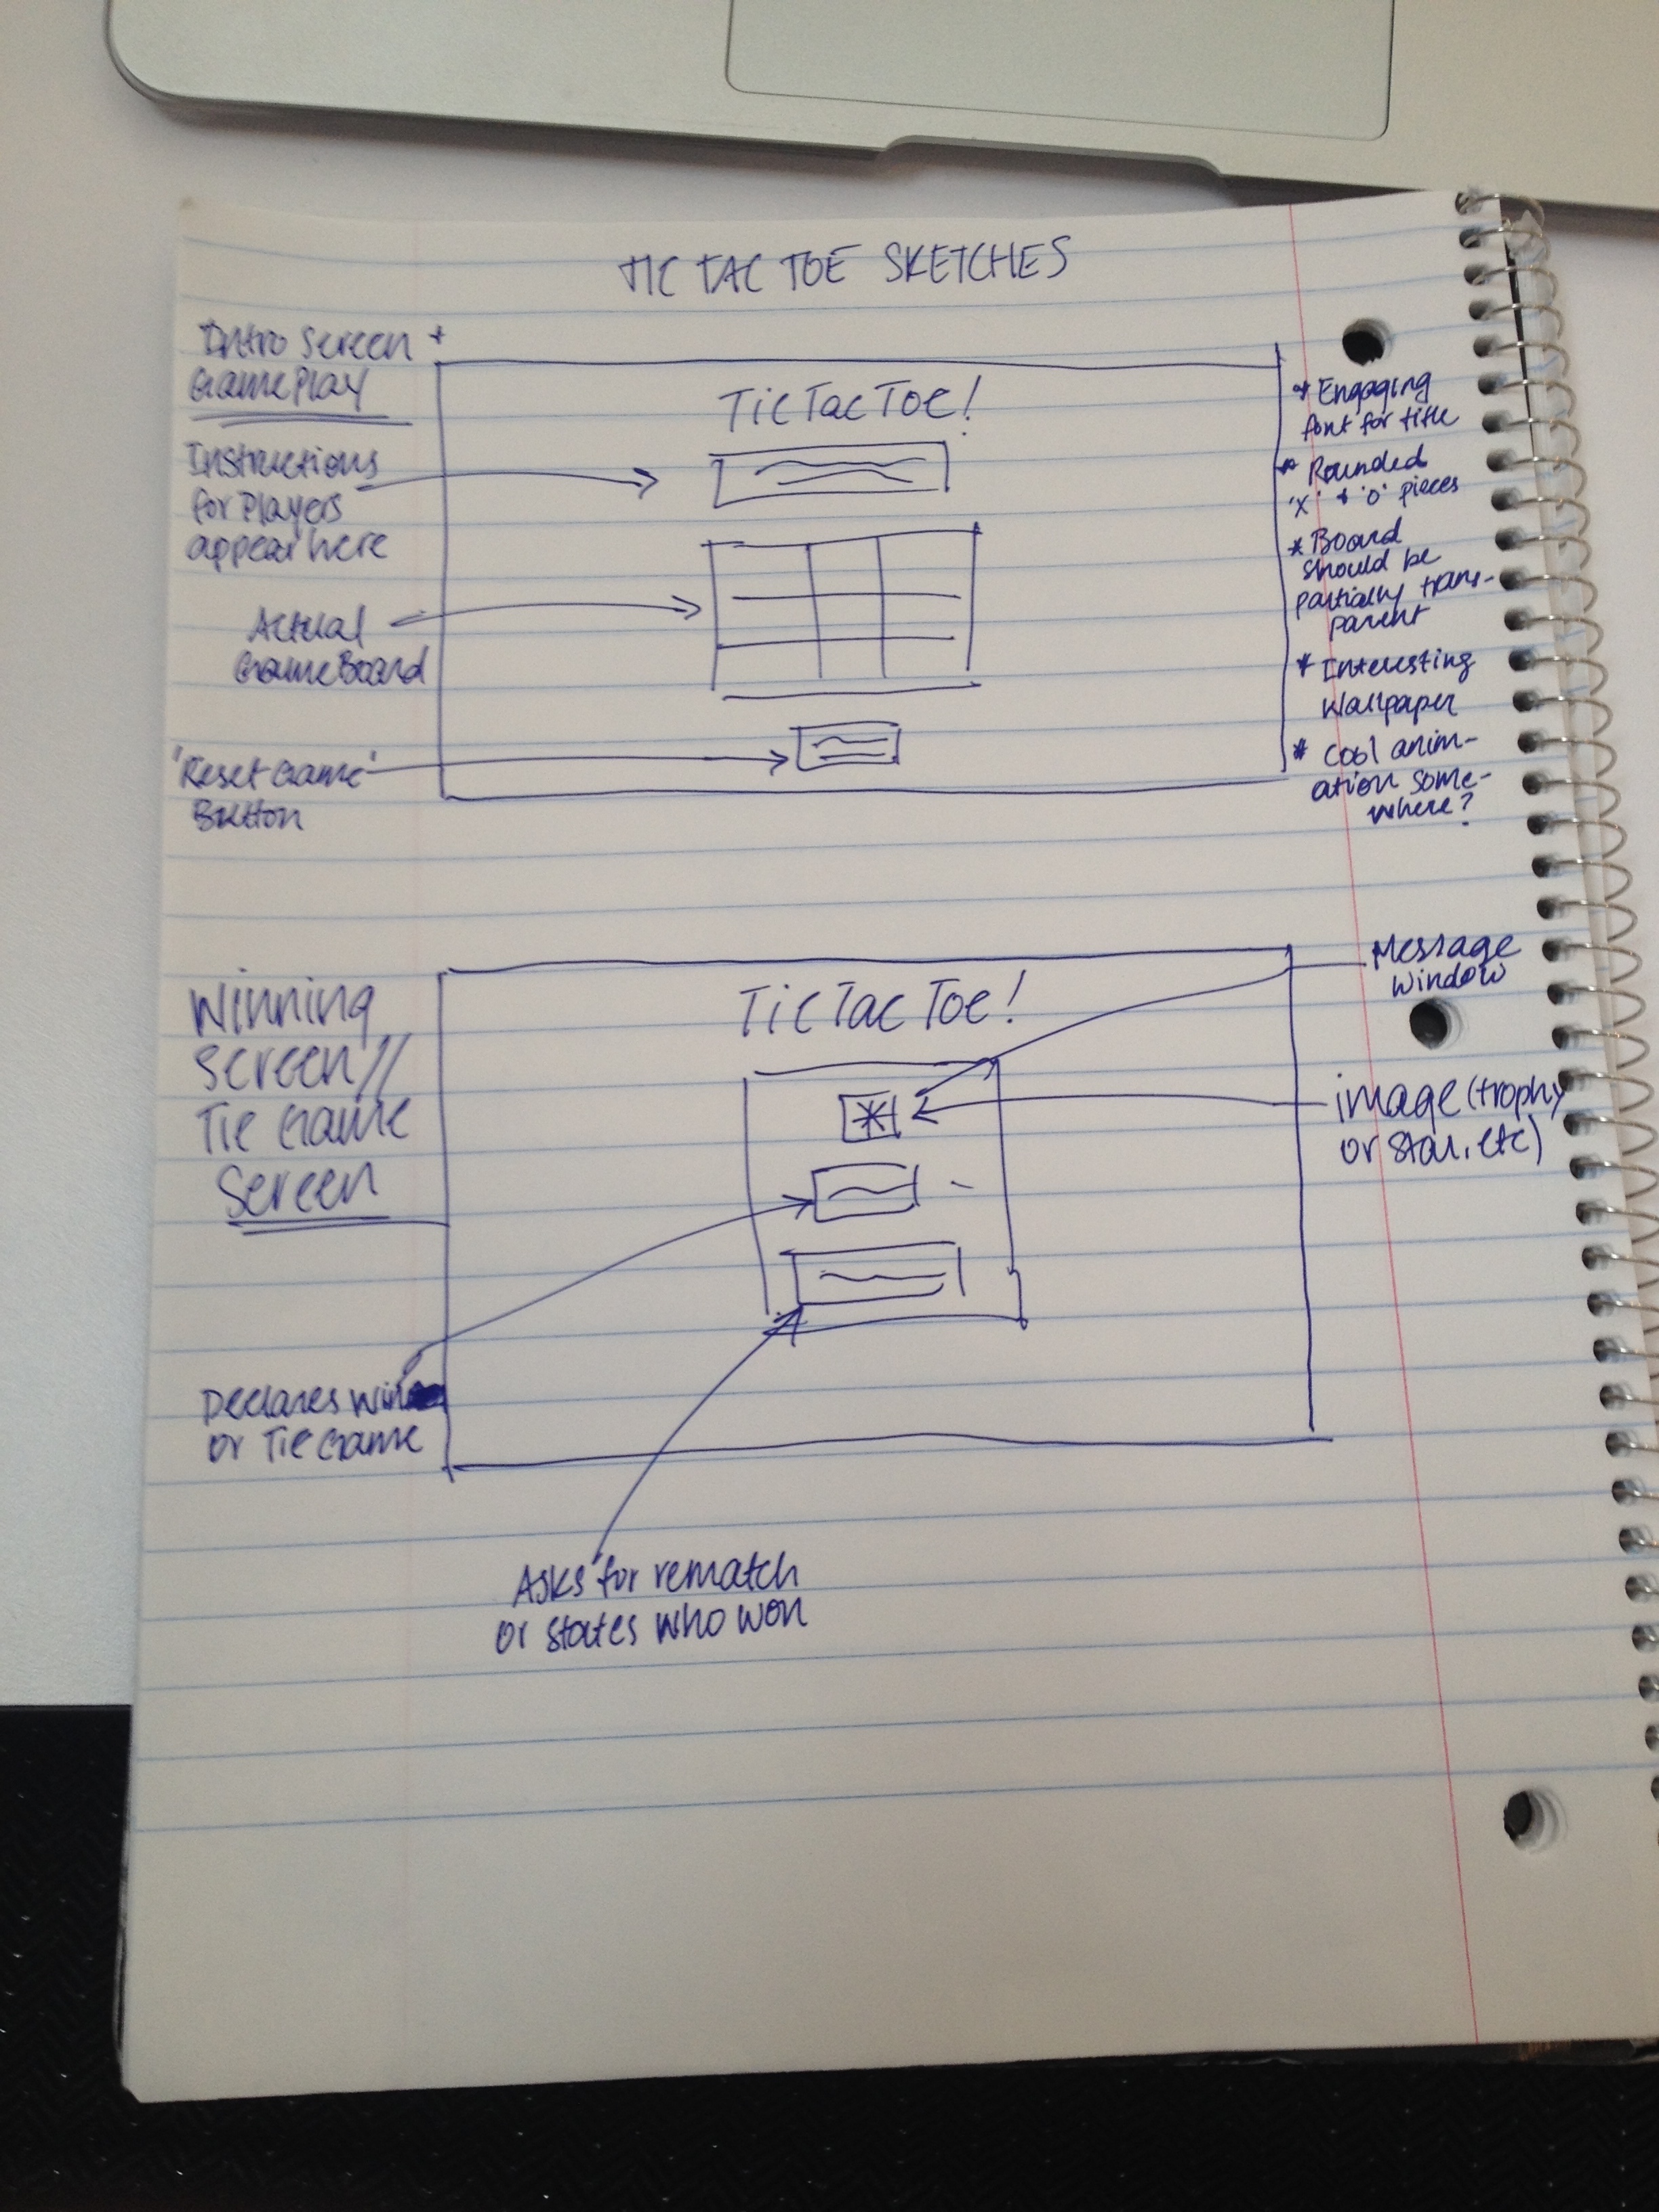 TIC TAC TOE SKETCHES
Intro Screen +
GamePlay
Instructions
for Players
appear here
Actual
GameBoard
'Reset Game'
Button
TicTacToe!
* Engaging
font for title
* Rounded
'X' & 'O' pieces
* Board
should be
partially trans-
parent
* Interesting
Wallpaper
* Cool anim-
ation some-
where?
Winning
Screen//
Tie Game
Screen
Declares Win
or Tie Game
Tic Tac Toe!
Message
Window
image (trophy
or star, etc)
Asks for rematch
or states who won